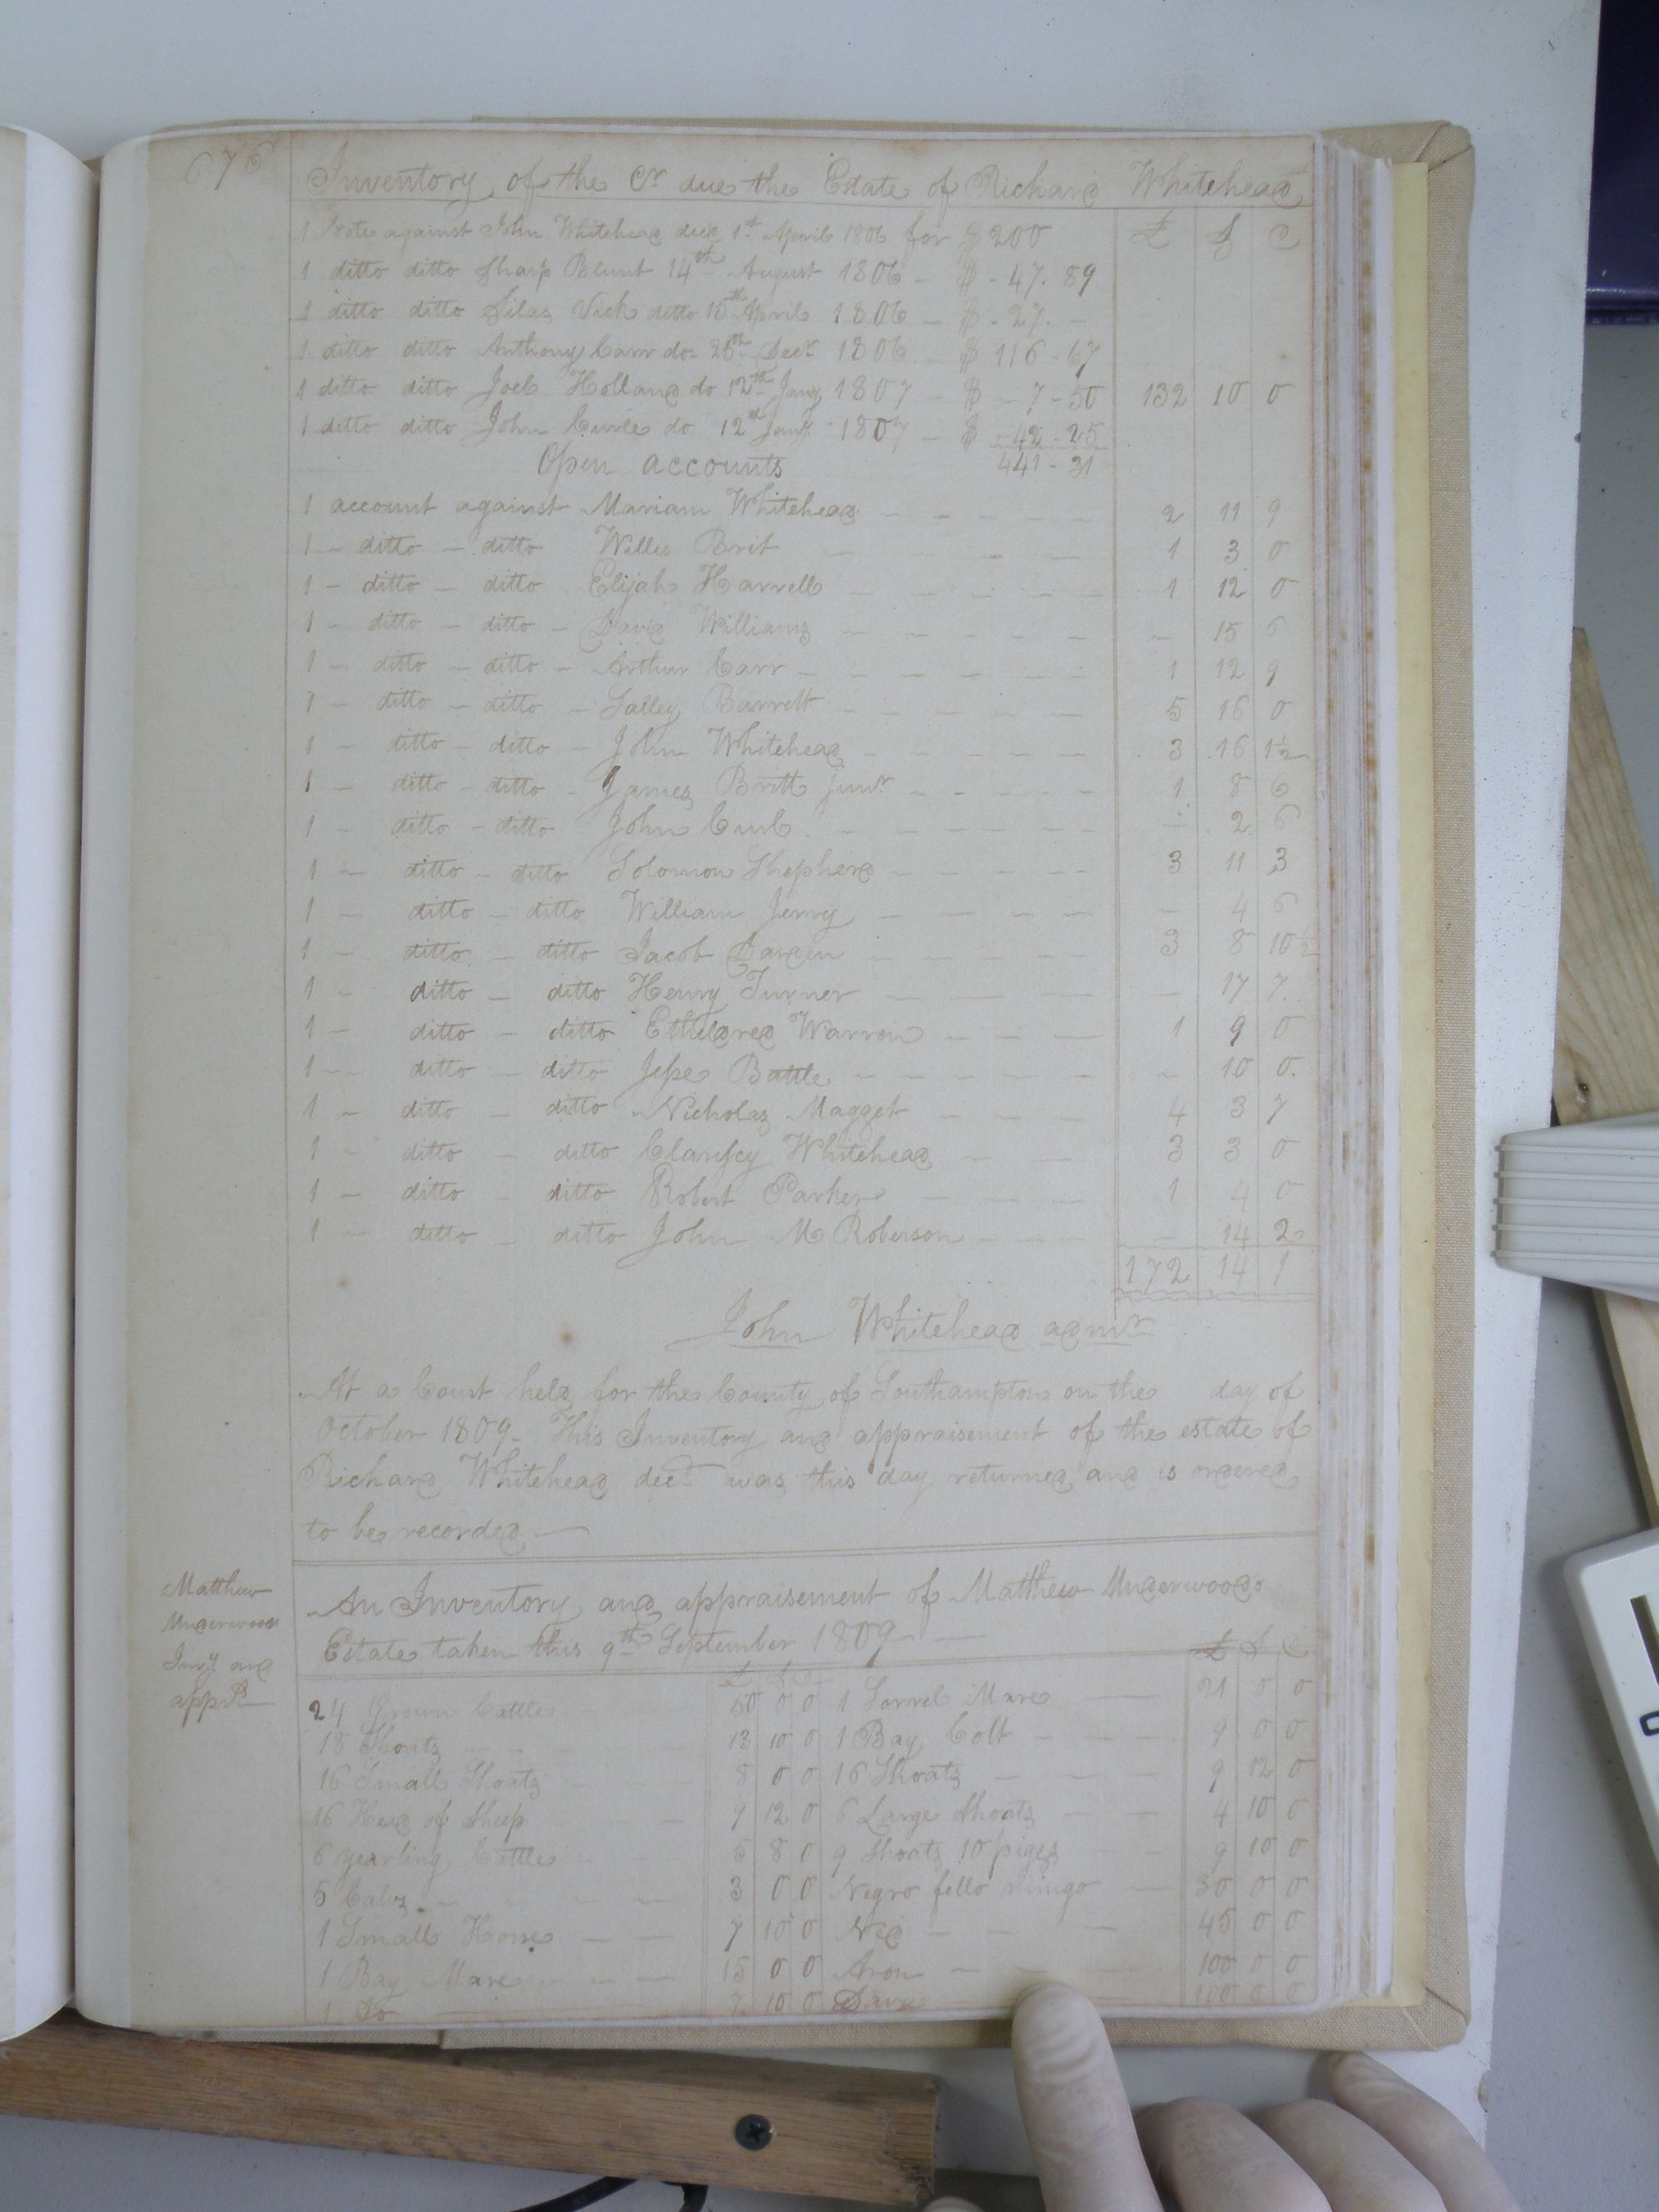 676
Inventory of the Cr due the Estate of Richard Whitehead
1 Note against John Whitehead due 1st April 1806 for $ 200 £ S C
1 ditto ditto Sharp Blunt 14th August 1806 - $ - 47. 89
1 ditto ditto Silas Vick ditto 15th April 1806 - $ - 27. -
1 ditto ditto Anthony Carr do- 25th Decr 1806 - $ 116 - 67
1 ditto ditto Joel Holland do 12th Jany 1807 - $ - 7 - 50 132 10 0
1 ditto ditto John do 12th Jany 1807 - $ - 42 - 25
Open accounts 441 - 31
1 account against Mariam Whitehead - - - - - 2 11 9
1 - ditto - ditto Willis Brit - - - 1 3 0
1 - ditto - ditto Elijah Harrell - - - - - - 1 12 0
1 - ditto - ditto - David Williams - - - - - - 15 6
1 - ditto - ditto - Arthur Carr - - - - - - 1 12 9
1 - ditto - ditto - Salley Barrett - - - - - 5 16 0
1 - ditto - ditto - John Whitehead - - - - - 3 16 1½
1 - ditto - ditto - James Britt Junr - - - - - 1 8 6
1 - ditto - ditto John Curl - - - - - - - 2 6
1 - ditto - ditto Solomon Shepherd - - - - - 3 11 3
1 - ditto - ditto William Jerry - - - - - 4 6
1 - ditto - ditto Jacob Darden - - - - - 3 8 10½
1 - ditto - ditto Henry Turner - - - - 17 7
1 - ditto - ditto Etheldred Warren - - - 1 9 0
1 - ditto - ditto Jesse Battle - - - - - - 10 0.
1 - ditto - ditto Nicholas Magget - - - 4 3 7
1 - ditto - ditto Whitehead - - 3 3 0
1 - ditto - ditto Robert Parker - - - 1 4 0
1 - ditto - ditto John M Roberson - - - - 14 2
172 14 1
John Whitehead admr
At a Court held for the County of Southampton on the day of
October 1809 - This Inventory and appraisement of the estate of
Richard Whitehead decd was this day returned and is ordered
to be recorded -
Matthew
Underwoods
Invy and
apprt
An Inventory and appraisement of Matthew Underwoods
Estate taken this 9th September 1809 -
£ S C £ S C
24 Grown Cattle 60 0 0 1 Sorrel Mare - 21 0 0
18 Shoats 13 10 0 1 Bay Colt - - - 9 0 0
16 Small Shoats 8 0 0 16 Shoats - - - 9 12 0
16 Head of Sheep 9 12 0 6 Large Shoats - - 4 10 0
6 yearling Cattle 5 8 0 9 Shoats 10 piges 9 10 0
5 Calvs - - - 3 0 0 Negro fello mingo - 30 0 0
1 Small Horse - - 7 10 0 Ned - - - 45 0 0
1 Bay Mare - - - 15 0 0 Aron - - - 100 0 0
1 Do 7 10 0 Dave 100 0 0